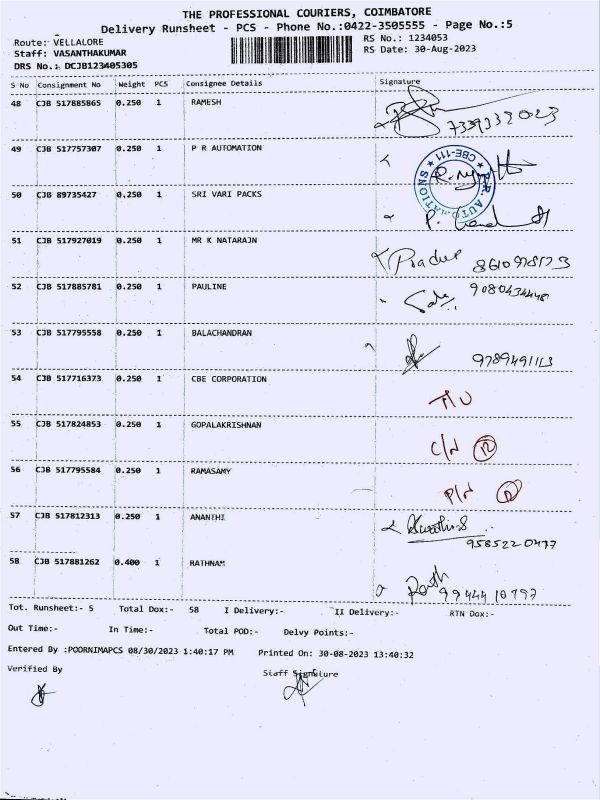 THE PROFESSIONAL COURIERS, COIMBATORE
Delivery Runsheet - PCS - Phone No.:0422-3505555 - Page No.:5
Route: VELLALORE RS No.: 1234053
Staff: VASANTHAKUMAR RS Date: 30-Aug-2023
DRS No.: DCJB123405305
S No Consignment No Weight PCS Consignee Details Signature
48 CJB 517885865 0.250 1 RAMESH
7339332023
49 CJB 517757307 0.250 1 P R AUTOMATION
P.R. AUTOMATIONS ★ CBE-111 ★
50 CJB 89735427 0.250 1 SRI VARI PACKS
51 CJB 517927019 0.250 1 MR K NATARAJN
Pradee 8610978173
52 CJB 517885781 0.250 1 PAULINE
9080434448
53 CJB 517795558 0.250 1 BALACHANDRAN
9789491113
54 CJB 517716373 0.250 1 CBE CORPORATION
55 CJB 517824853 0.250 1 GOPALAKRISHNAN
C/N
56 CJB 517795584 0.250 1 RAMASAMY
P/N
57 CJB 517812313 0.250 1 ANANTHI
9585220477
58 CJB 517881262 0.400 1 RATHNAM
9944410797
Tot. Runsheet:- 5 Total Dox:- 58 I Delivery:- II Delivery:- RTN Dox:-
Out Time:- In Time:- Total POD:- Delvy Points:-
Entered By :POORNIMAPCS 08/30/2023 1:40:17 PM Printed On: 30-08-2023 13:40:32
Verified By Staff Signature